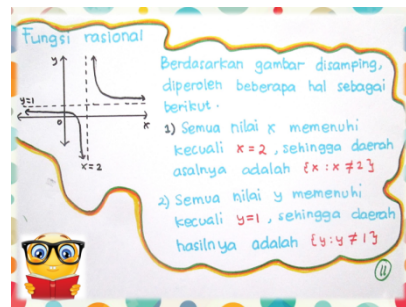 Fungsi rasional
y
y=1
0
x
x=2
Berdasarkan gambar disamping,
diperoleh beberapa hal sebagai
berikut.
1) Semua nilai x memenuhi
kecuali x = 2, sehingga daerah
asalnya adalah {x : x ≠ 2}
2) Semua nilai y memenuhi
kecuali y=1, sehingga daerah
hasilnya adalah {y : y ≠ 1}
11